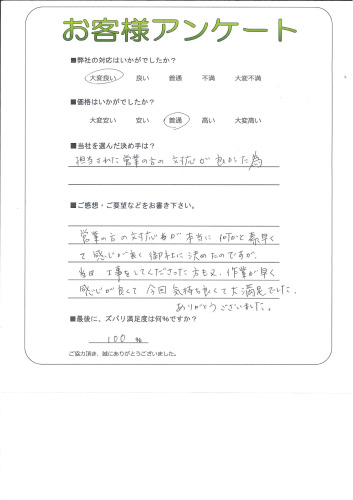 お客様アンケート
■弊社の対応はいかがでしたか?
大変良い 良い 普通 不満 大変不満
■価格はいかがでしたか?
大変安い 安い 普通 高い 大変高い
■当社を選んだ決め手は?
担当された営業の方の対応が良かった為
■ご感想・ご要望などをお書き下さい。
営業の方の対応が本当に 何かと素早く
て感じが良く御社に決めたのですが、
当日工事をしてくださった方も又、作業が早く
感じが良くて今回気持ち良くて大満足でした。
ありがとうございました。
■最後に、ズバリ満足度は何%ですか?
100 %
ご協力頂き、誠にありがとうございました。